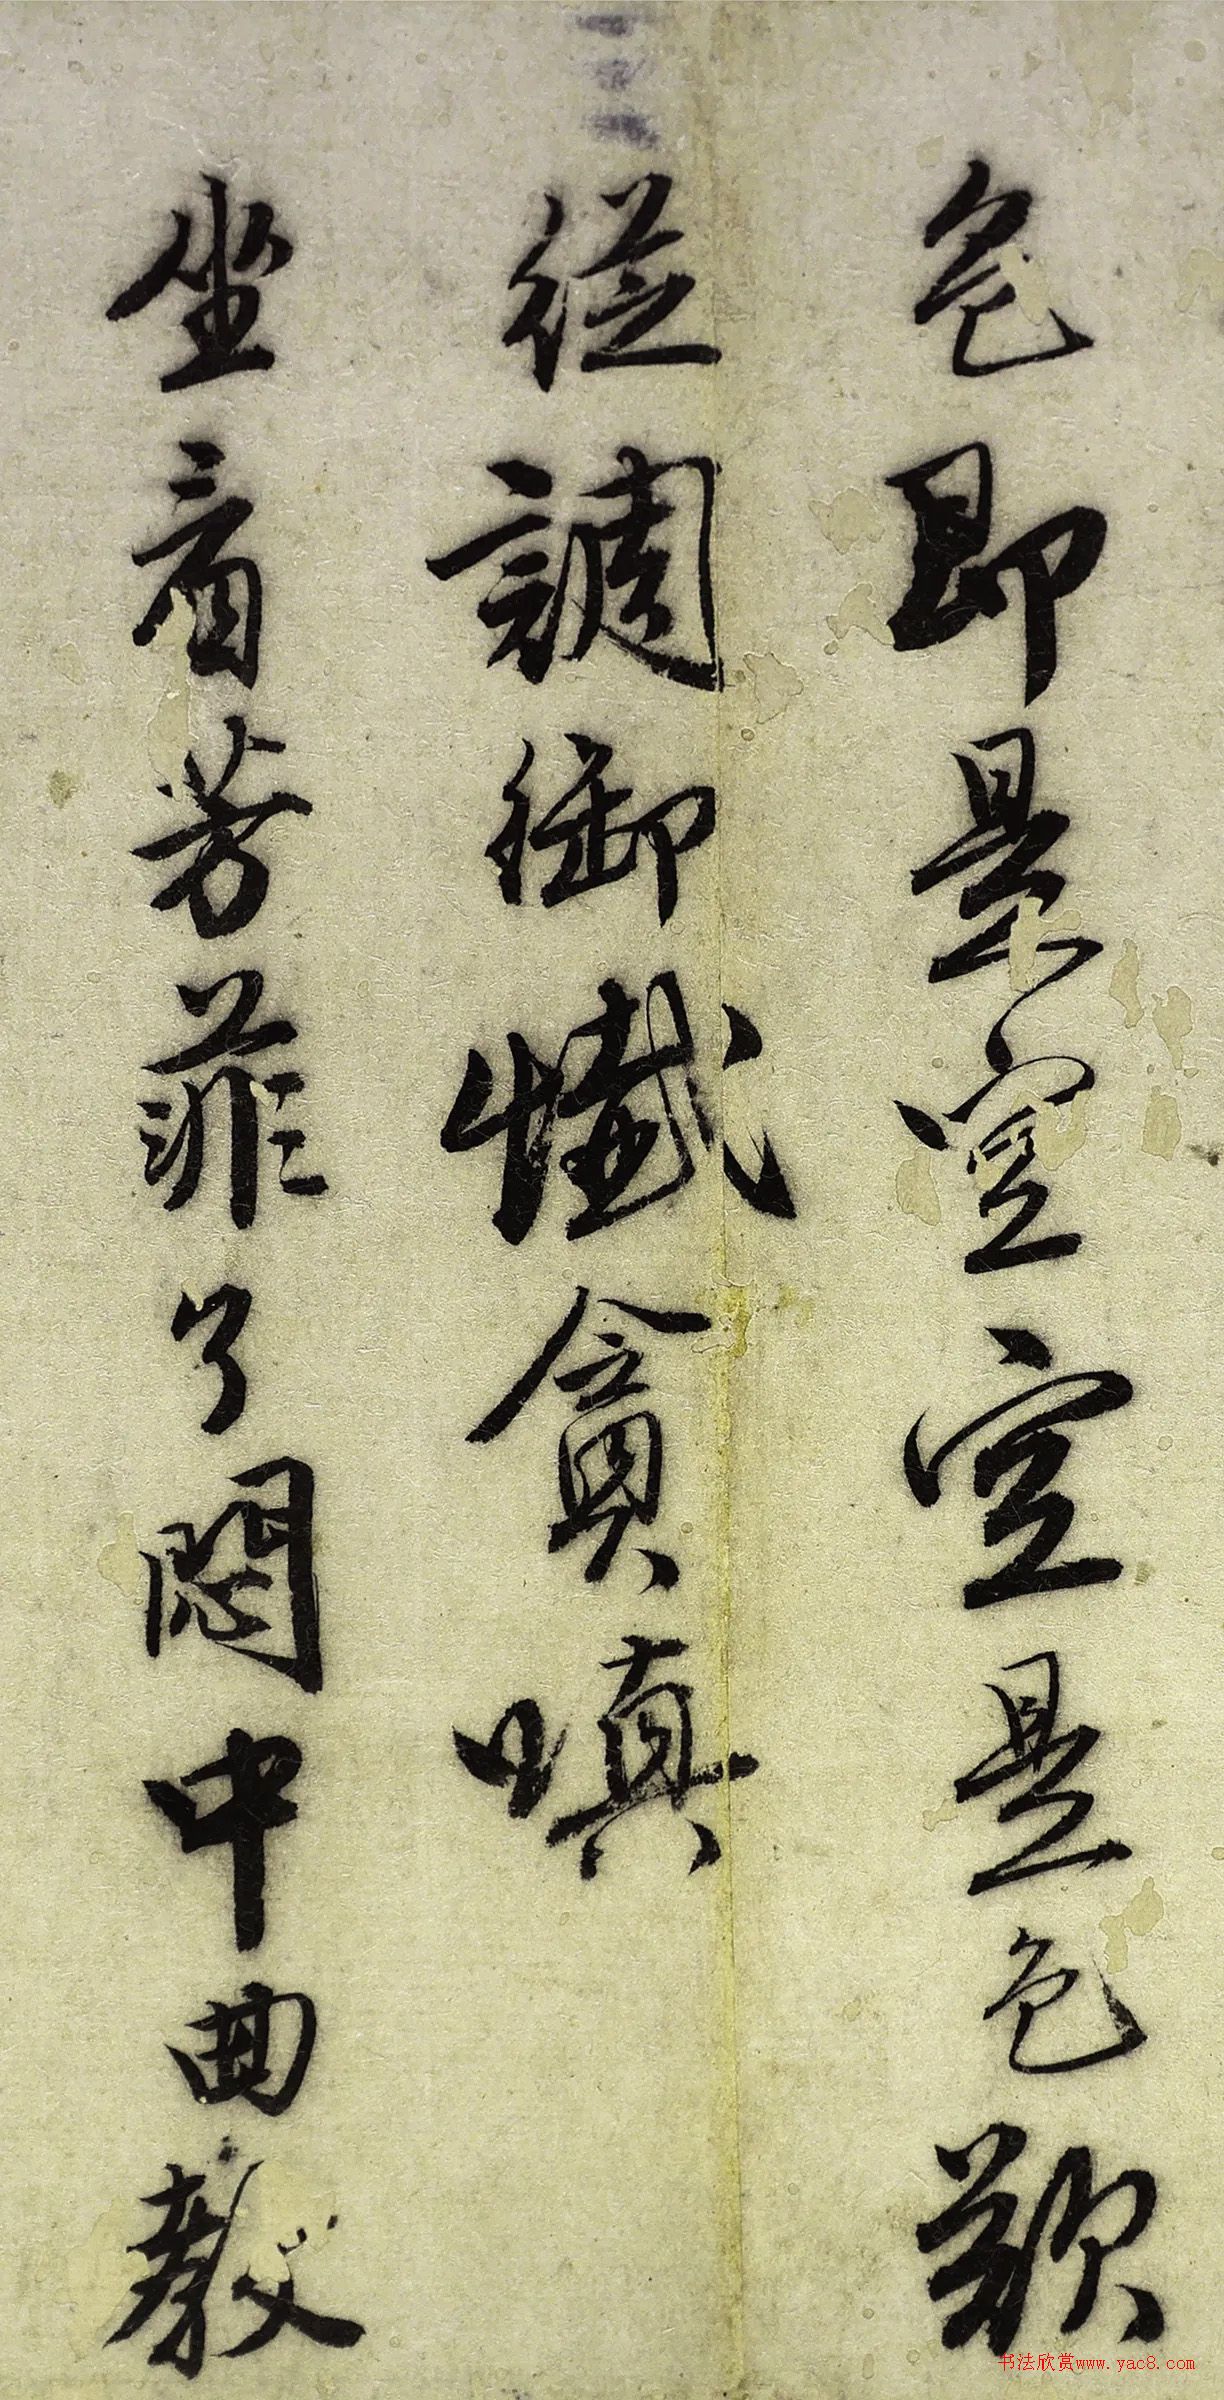 色即是空空是色歎
從調御懺貪嗔
坐看芳菲了悶中曲教
书法欣赏www.yac8.com